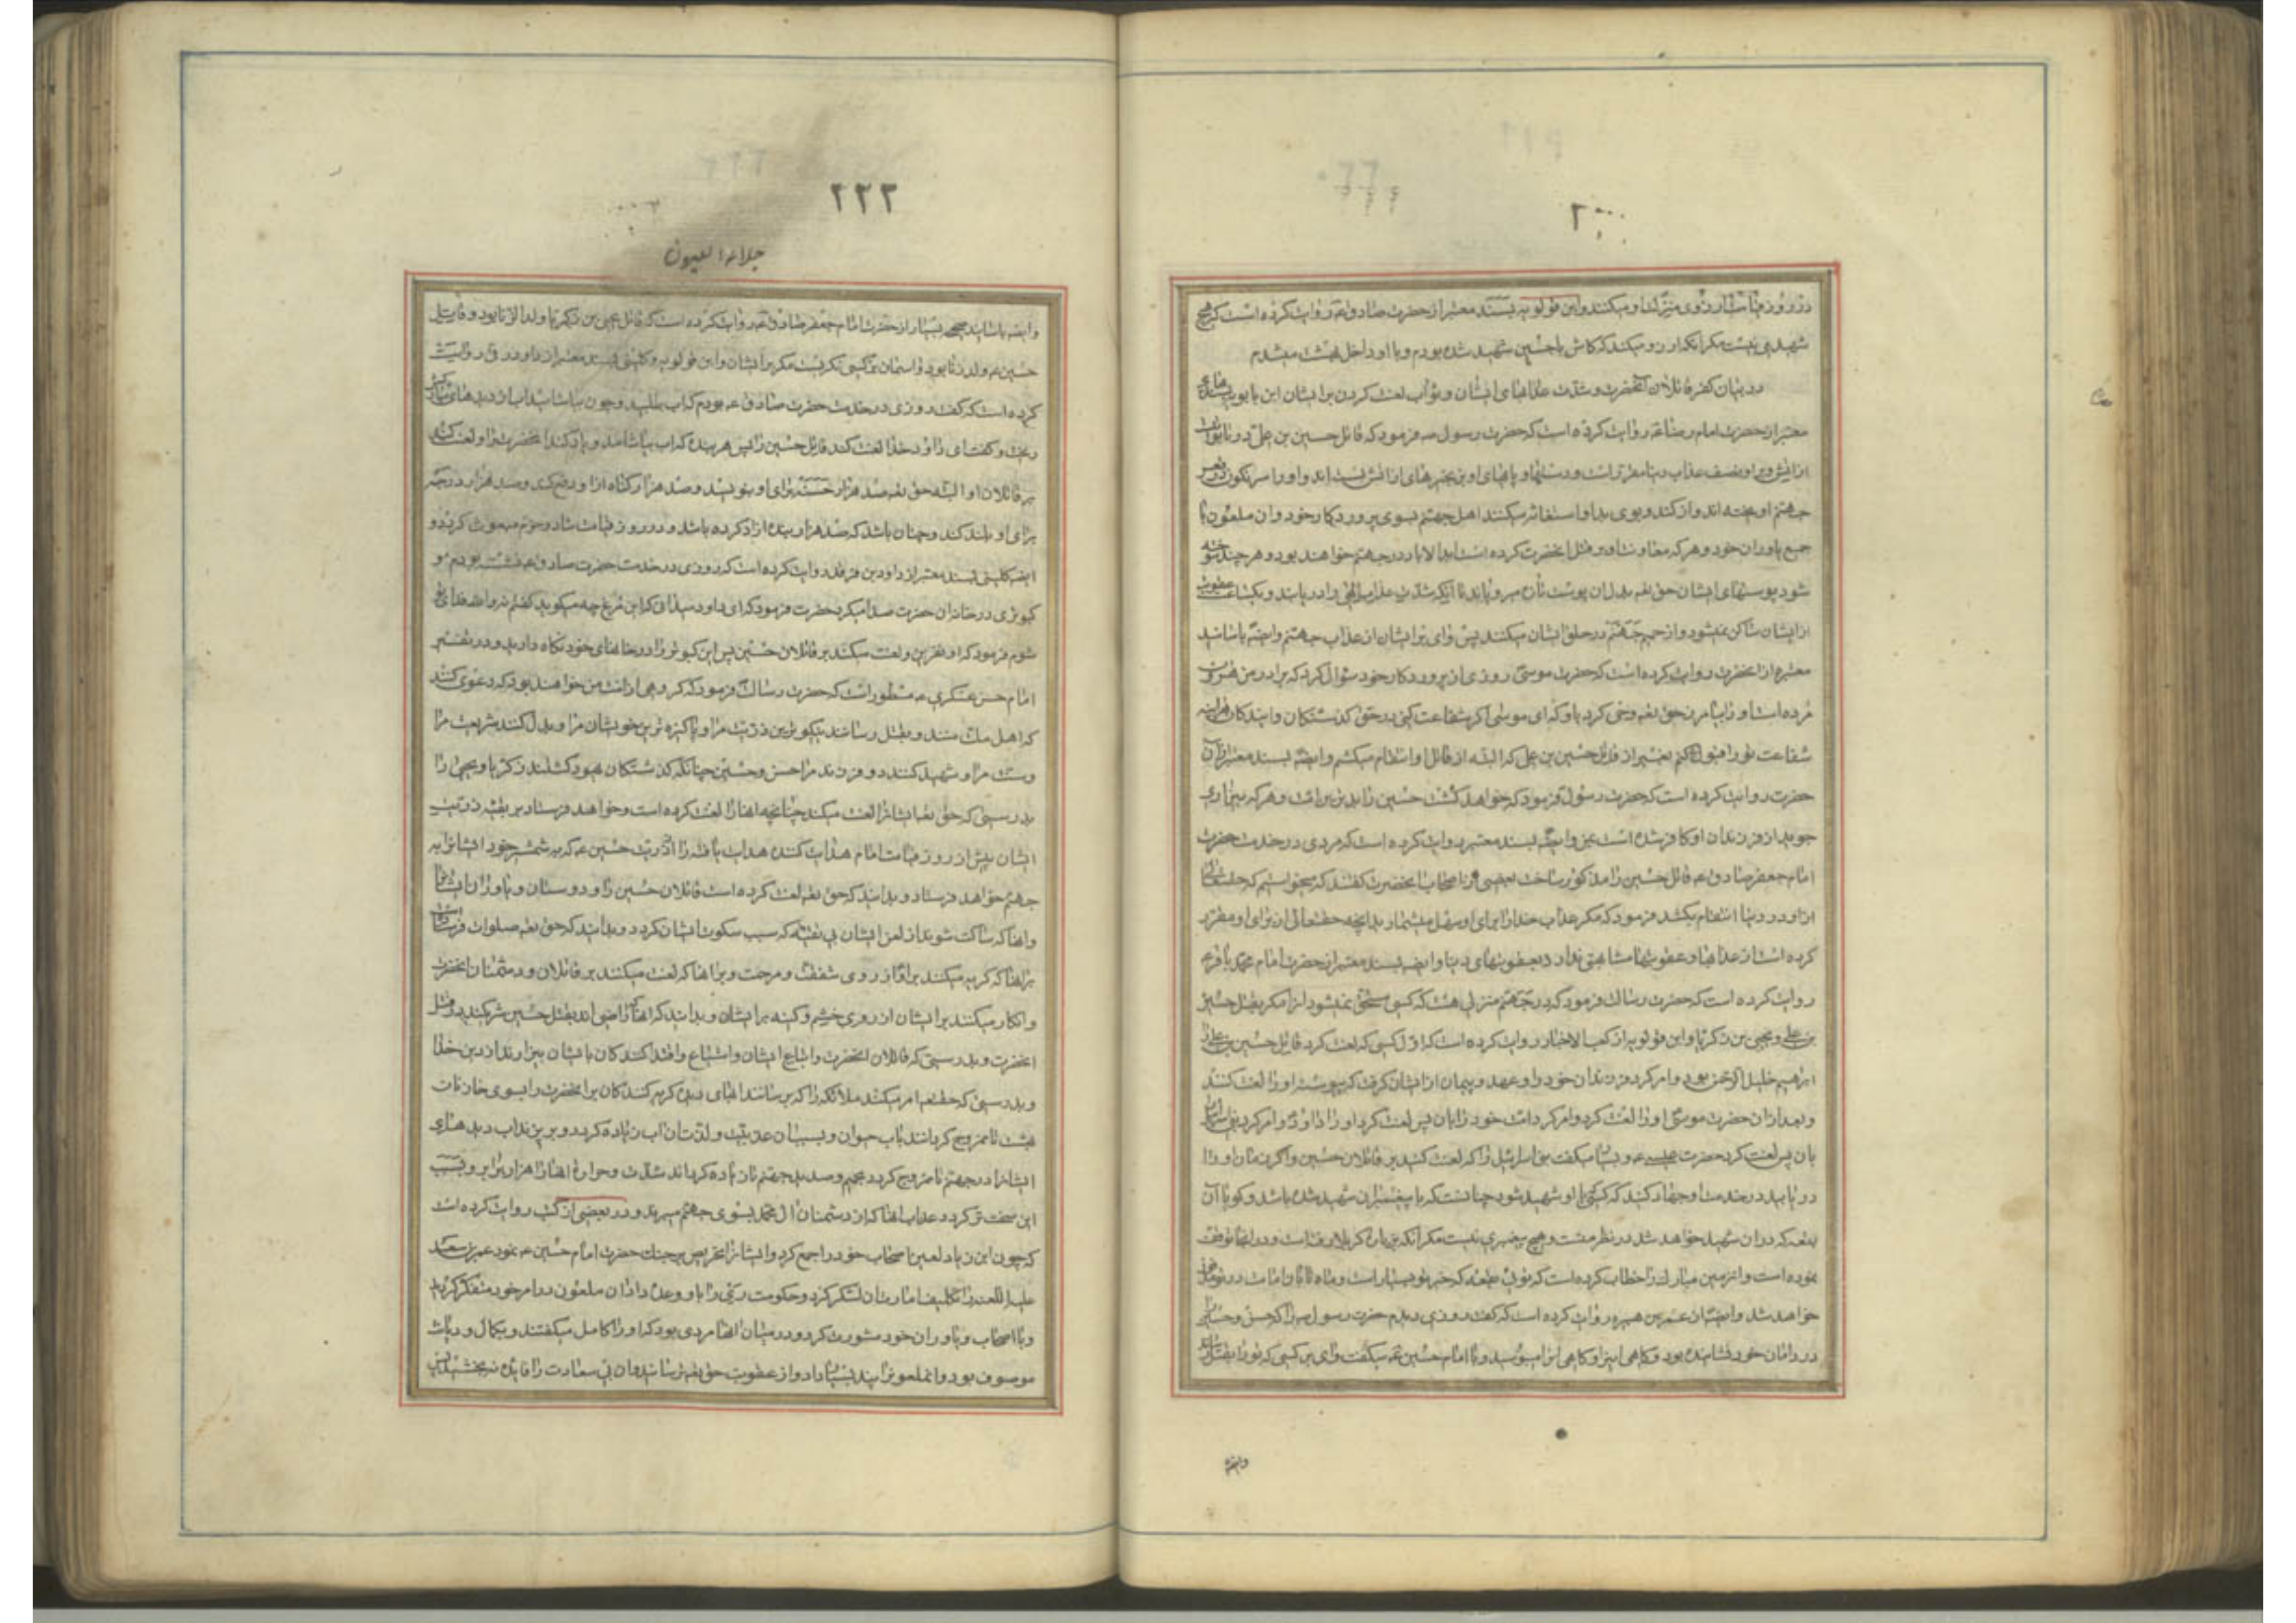 در روز قیامت آرزوی منزلت او میکنند و ابن قولویه بسند معتبر از حضرت صادق عه روایت کرده است که هیچ
شهیدی نیست مگر آنکه آرزو میکند که کاش با حسین شهید شده بودم و با او داخل بهشت میشدم
در بیان کفر قاتلان آنحضرت و شدت عذابهای ایشان و ثواب لعنت کردن بر ایشان ابن بابویه بسندهای
معتبر از حضرت امام رضا عه روایت کرده است که حضرت رسول صه فرمود که قاتل حسین بن علی در تابوت
از آتش و بر او نصف عذاب دنیا مقرر است و دستها و پاهای او بزنجیرهای از آتش بسته اند و او را سرنگون در قعر
جهنم او یخته اند و از گند و بوی بد او استغاثه میکنند اهل جهنم بسوی پروردگار خود و آن ملعون با
جمیع یاوران خود و هر که معاونت او بر قتل آنحضرت کرده است ابدالاباد در جهنم خواهند بود و هر چند سوخته
شود پوستهای ایشان حق تعه بدل آن پوست تازه میرویاند تا آنکه شدت عذاب الهی را در یابند و یکساعت عقوبت
از ایشان ساکن نمیشود و از حمیم جهنم در حلق ایشان میکنند پس وای بر ایشان از عذاب جهنم و ایضه باسانید
معتبره از آنحضرت روایت کرده است که حضرت موسی روزی از پروردگار خود سؤال کرد که برادر من هرون
مرده است او را بیامرز حق تعه وحی کرد باو که ای موسی اگر شفاعت کنی در حق گذشتگان و ایندگان هراینه
شفاعت تو را قبول کنم بغیر از قاتل حسین بن علی که البته از قاتل او انتقام میکشم و ایضه بسند معتبر از آن
حضرت روایت کرده است که حضرت رسول فرمود که خواهد کشت حسین را بدترین امت و هر که بیزاری
جوید از فرزندان او کافر شده است بمن و ایضه بسند معتبر روایت کرده است که مردی در خدمت حضرت
امام جعفر صادق عه قاتل حسین را مذکور ساخت بعضی از اصحاب آنحضرت گفتند که میخواستیم که حقتعالی
از او در دنیا انتقام بکشد فرمود که مگر عذاب خدا را برای او سهل میشمارید آنچه حقتعالی از برای او مقرر
کرده است از عذابها و عقوبتها مشابهتی ندارد بعقوبتهای دنیا و ایضه بسند معتبر از حضرت امام محمد باقر عه
روایت کرده است که حضرت رسالت فرمود که در جهنم منزلی هست که کسی مستحق نمیشود انرا مگر بقتل حسین
بن علی و یحیی بن زکریا و ابن قولویه از کعب الاخبار روایت کرده است که اول کسی که لعنت کرد قاتل حسین بن علی را
ابراهیم خلیل الرحمن بود و امر کرد فرزندان خود را و عهد و پیمان از ایشان گرفت که پیوسته او را لعنت کنند
و بعد از آن حضرت موسی او را لعنت کرد و امر کرد امت خود را بان پس لعنت کرد او را داود و امر کرد بنی اسرائیل را
بان پس لعنت کرد حضرت عیسی عه و بسیار میگفت بنی اسرائیل را که لعنت کنید بر قاتلان حسین و اگر زمان او را
در یابید در خدمت او جهاد کنید که کسی با او شهید شود چنانست که با پیغمبران شهید شده باشد و گویا آن
بقعه که در آن شهید خواهد شد در نظر منست و هیچ پیغمبری نیست مگر آنکه بزیارت کربلا رفته است و در آنجا توقف
نموده است و انزمین مبارک را خطاب کرده است که توئی بقعه که خیر تو بسیار است و ماه تابان امامت در تو مدفون
خواهد شد و ایضه از عمر بن هبیره روایت کرده است که گفت روزی دیدم حضرت رسول صه را که حسن و حسین را
در دامان خود نشانیده بود و گاهی اینرا و گاهی انرا میبوسید و با امام حسین عه میگفت وای بر کسی که تو را بقتل رساند
وایضه
۲۲۲
جلاء العیون
و ایضه باسانید صحیحه بسیار از حضرت امام جعفر صادق عه روایت کرده است که قاتل یحیی بن زکریا ولدالزنا بود و قاتل
حسین عه ولد زنا بود و اسمان بر کسی نگریست مگر بر ایشان و ابن قولویه و کلینی بسند معتبر از داود رقی روایت
کرده است که گفت روزی در خدمت حضرت صادق عه بودم که اب طلبید و چون بیاشامید اب از دیدهای مبارکش
ریخت و گفت ای داود خدا لعنت کند قاتل حسین را پس هر بنده که اب بیاشامد و یاد کند آنحضرت را و لعنت کند
بر قاتلان او البته حق تعه صد هزار حسنه برای او بنویسد و صد هزار گناه از او رفع کند و صد هزار درجه
برای او بلند کند و چنان باشد که صد هزار بنده آزاد کرده باشد و در روز قیامت شاد و خرم مبعوث گردد و
ایضه کلینی بسند معتبر از داود بن فرقد روایت کرده است که روزی در خدمت حضرت صادق عه نشسته بودم و
کبوتری در خانه ان حضرت صدا میکرد حضرت فرمود که ای داود میدانی که این مرغ چه میگوید گفتم نه والله فدای تو
شوم فرمود که او نفرین و لعنت میکند بر قاتلان حسین پس این کبوتر را در خانهای خود نگاه دارید و در تفسیر
امام حسن عسکری عه مسطور است که حضرت رسالت فرمود که گروهی از امت من خواهند بود که دعوی کنند
که اهل ملت منند و بقتل رسانند نیکوترین ذریت مرا و پاکیزه ترین خویشان مرا و بدل کنند شریعت مرا
و سنت مرا و شهید کنند دو فرزند مرا حسن و حسین چنانکه گذشتگان یهود کشتند زکریا و یحیی را
بدرستی که حق تعه ایشانرا لعنت میکند چنانچه انها را لعنت کرده است و خواهد فرستاد بر بقیه ذریت
ایشان پیش از روز قیامت امام هدایت کننده هدایت یافته را از ذریت حسین عه که بشمشیر خود ایشانرا به
جهنم خواهد فرستاد و بدانید که حق تعه لعنت کرده است قاتلان حسین را و دوستان و یاوران ایشانرا
و انها که ساکت شوند از لعن ایشان بی تقیه که سبب سکوت ایشان گردد و بدانید که حق تعه صلوات فرستاده است
بر انها که گریه میکنند بر او از روی شفقت و مرحمت و بر انها که لعنت میکنند بر قاتلان و دشمنان آنحضرت
و انکار میکنند بر ایشان از روی خشم و کینه بر ایشان و بدانید که انها که راضی اند بقتل حسین شریکند در قتل
آنحضرت و بدرستی که قاتلان آنحضرت و اتباع ایشان و اشیاع و اقتدا کنندگان بایشان بیزارند از دین خدا
و بدرستی که حقتعه امر میکند ملائکه را که برسانند ابهای دیده گریه کنندگان بر آنحضرت را بسوی خازنان
بهشت تا ممزوج گردانند باب حیوان و بسبب ان عذوبت و لذت ان اب زیاده گردد و بریزند اب دیدهای
ایشانرا در جهنم تا ممزوج گردد بحمیم و صدید جهنم تا زیاده گرداند شدت و حرارت انها را هزار برابر و بسبب
این سخت تر گردد عذاب انها که از دشمنان آل محمد بسوی جهنم میبرند و در بعضی از کتب روایت کرده است
که چون ابن زیاد لعین اصحاب خود را جمع کرد و ایشانرا تحریص بر جنک حضرت امام حسین عه نمود عمر بن سعد
علیه اللعنه را تکلیف امارت ان لشکر کرد و حکومت ری را باو وعده داد ان ملعون در امر خود متفکر گردید
و با اصحاب و یاوران خود مشورت کرد و در میان انها مردی بود که او را کامل میگفتند و بکمال و دیانت
موصوف بود و انملعونرا پند بسیار داد و از عقوبت حق تعه ترسانید و ان بی سعادت را فایده نبخشید پس